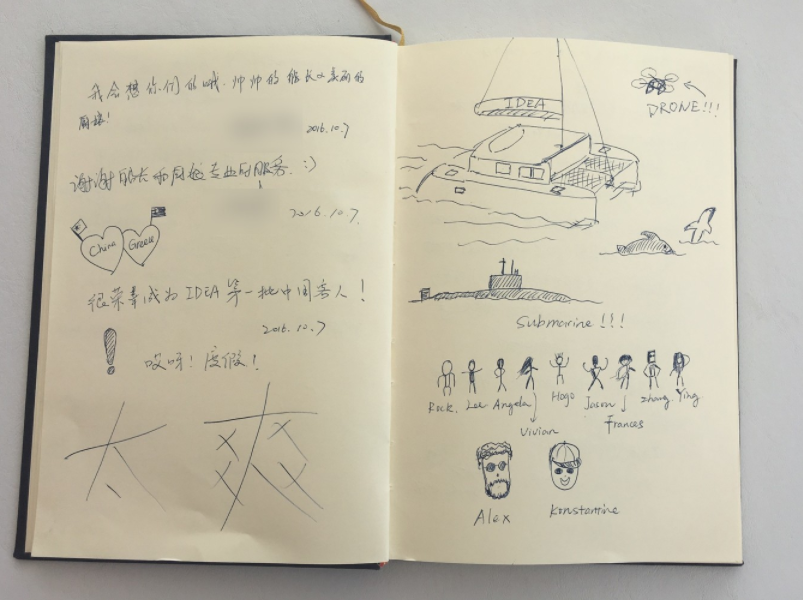 我会想你们的哦.帅帅的船长&美丽的
周娘!
2016.10.7
谢谢船长和周娘专业的服务. :)
2016.10.7.
China Greece
很荣幸成为IDEA第一批中国客人!
2016.10.7
! 哎呀!度假!
太爽
IDEA
DRONE!!!
Submarine!!!
Rock. Lee Angela Hogo Jason Zhang. Ying
Vivian Frances
Alex Konstantine